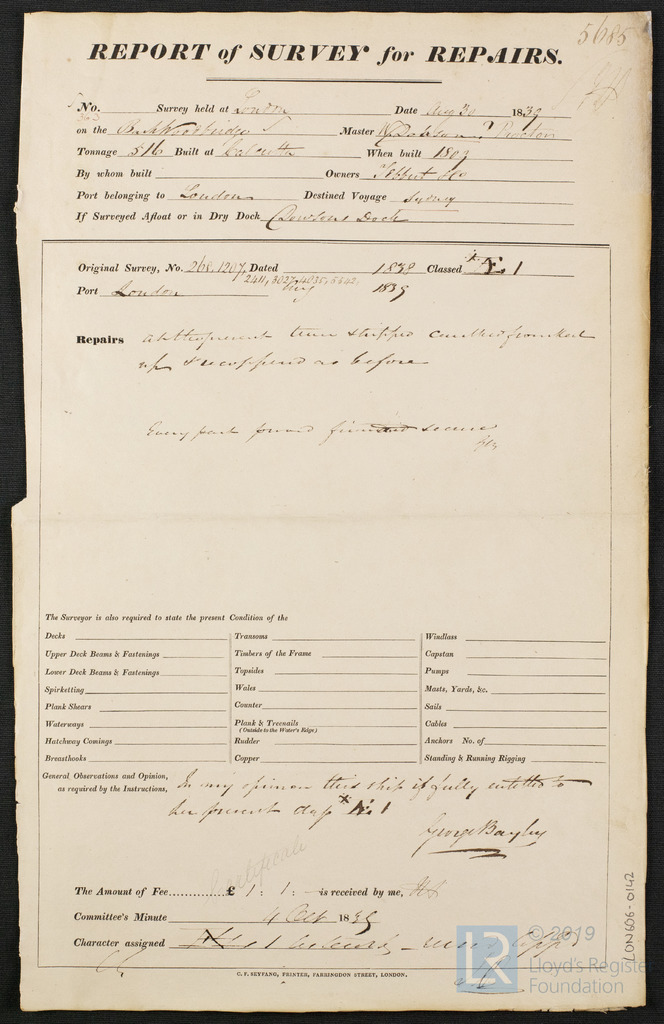 5685
REPORT of SURVEY for REPAIRS.
No. Survey held at London Date Aug 30 1839
363
on the Bark Woodbridge Master
Tonnage 516 Built at Calcutta When built 1809
By whom built Owners
Port belonging to London Destined Voyage Sydney
If Surveyed Afloat or in Dry Dock Dock
Original Survey, No. 268, 1207, Dated 1838 Classed Æ 1
2411, 3027, 4035, 5342,
Port London 1839
Repairs At the present time stripped caulked
up & recoppered as before
Every part found firm and secure
The Surveyor is also required to state the present Condition of the
Decks Transoms Windlass
Upper Deck Beams & Fastenings Timbers of the Frame Capstan
Lower Deck Beams & Fastenings Topsides Pumps
Spirketting Wales Masts, Yards, &c.
Plank Shears Counter Sails
Waterways Plank & Treenails Cables
(Outside to the Water's Edge)
Hatchway Comings Rudder Anchors No. of
Breasthooks Copper Standing & Running Rigging
General Observations and Opinion, In my opinion this ship is fully entitled to
as required by the Instructions, her present class * Æ 1
George Bayley
Certificate
The Amount of Fee......... £ 1 : 1 : - is received by me,
Committee's Minute 4 Oct 1839
Character assigned
C. F. SEYFANG, PRINTER, FARRINGDON STREET, LONDON.
LON606-0142
LR
© 2019
Lloyd's Register
Foundation